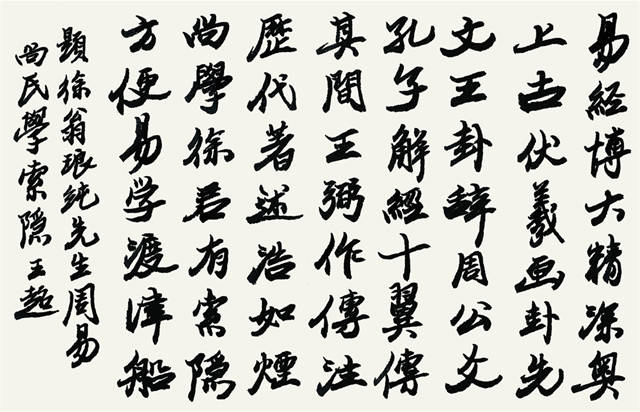 易經博大精深奥
上古伏羲画卦先
文王卦辞周公爻
孔子解經十翼傳
其間王弼作傳注
歷代著述浩如煙
尚學徐君有索隐
方便易学渡津船
題徐翁琅純先生周易
尚氏學索隐 王超